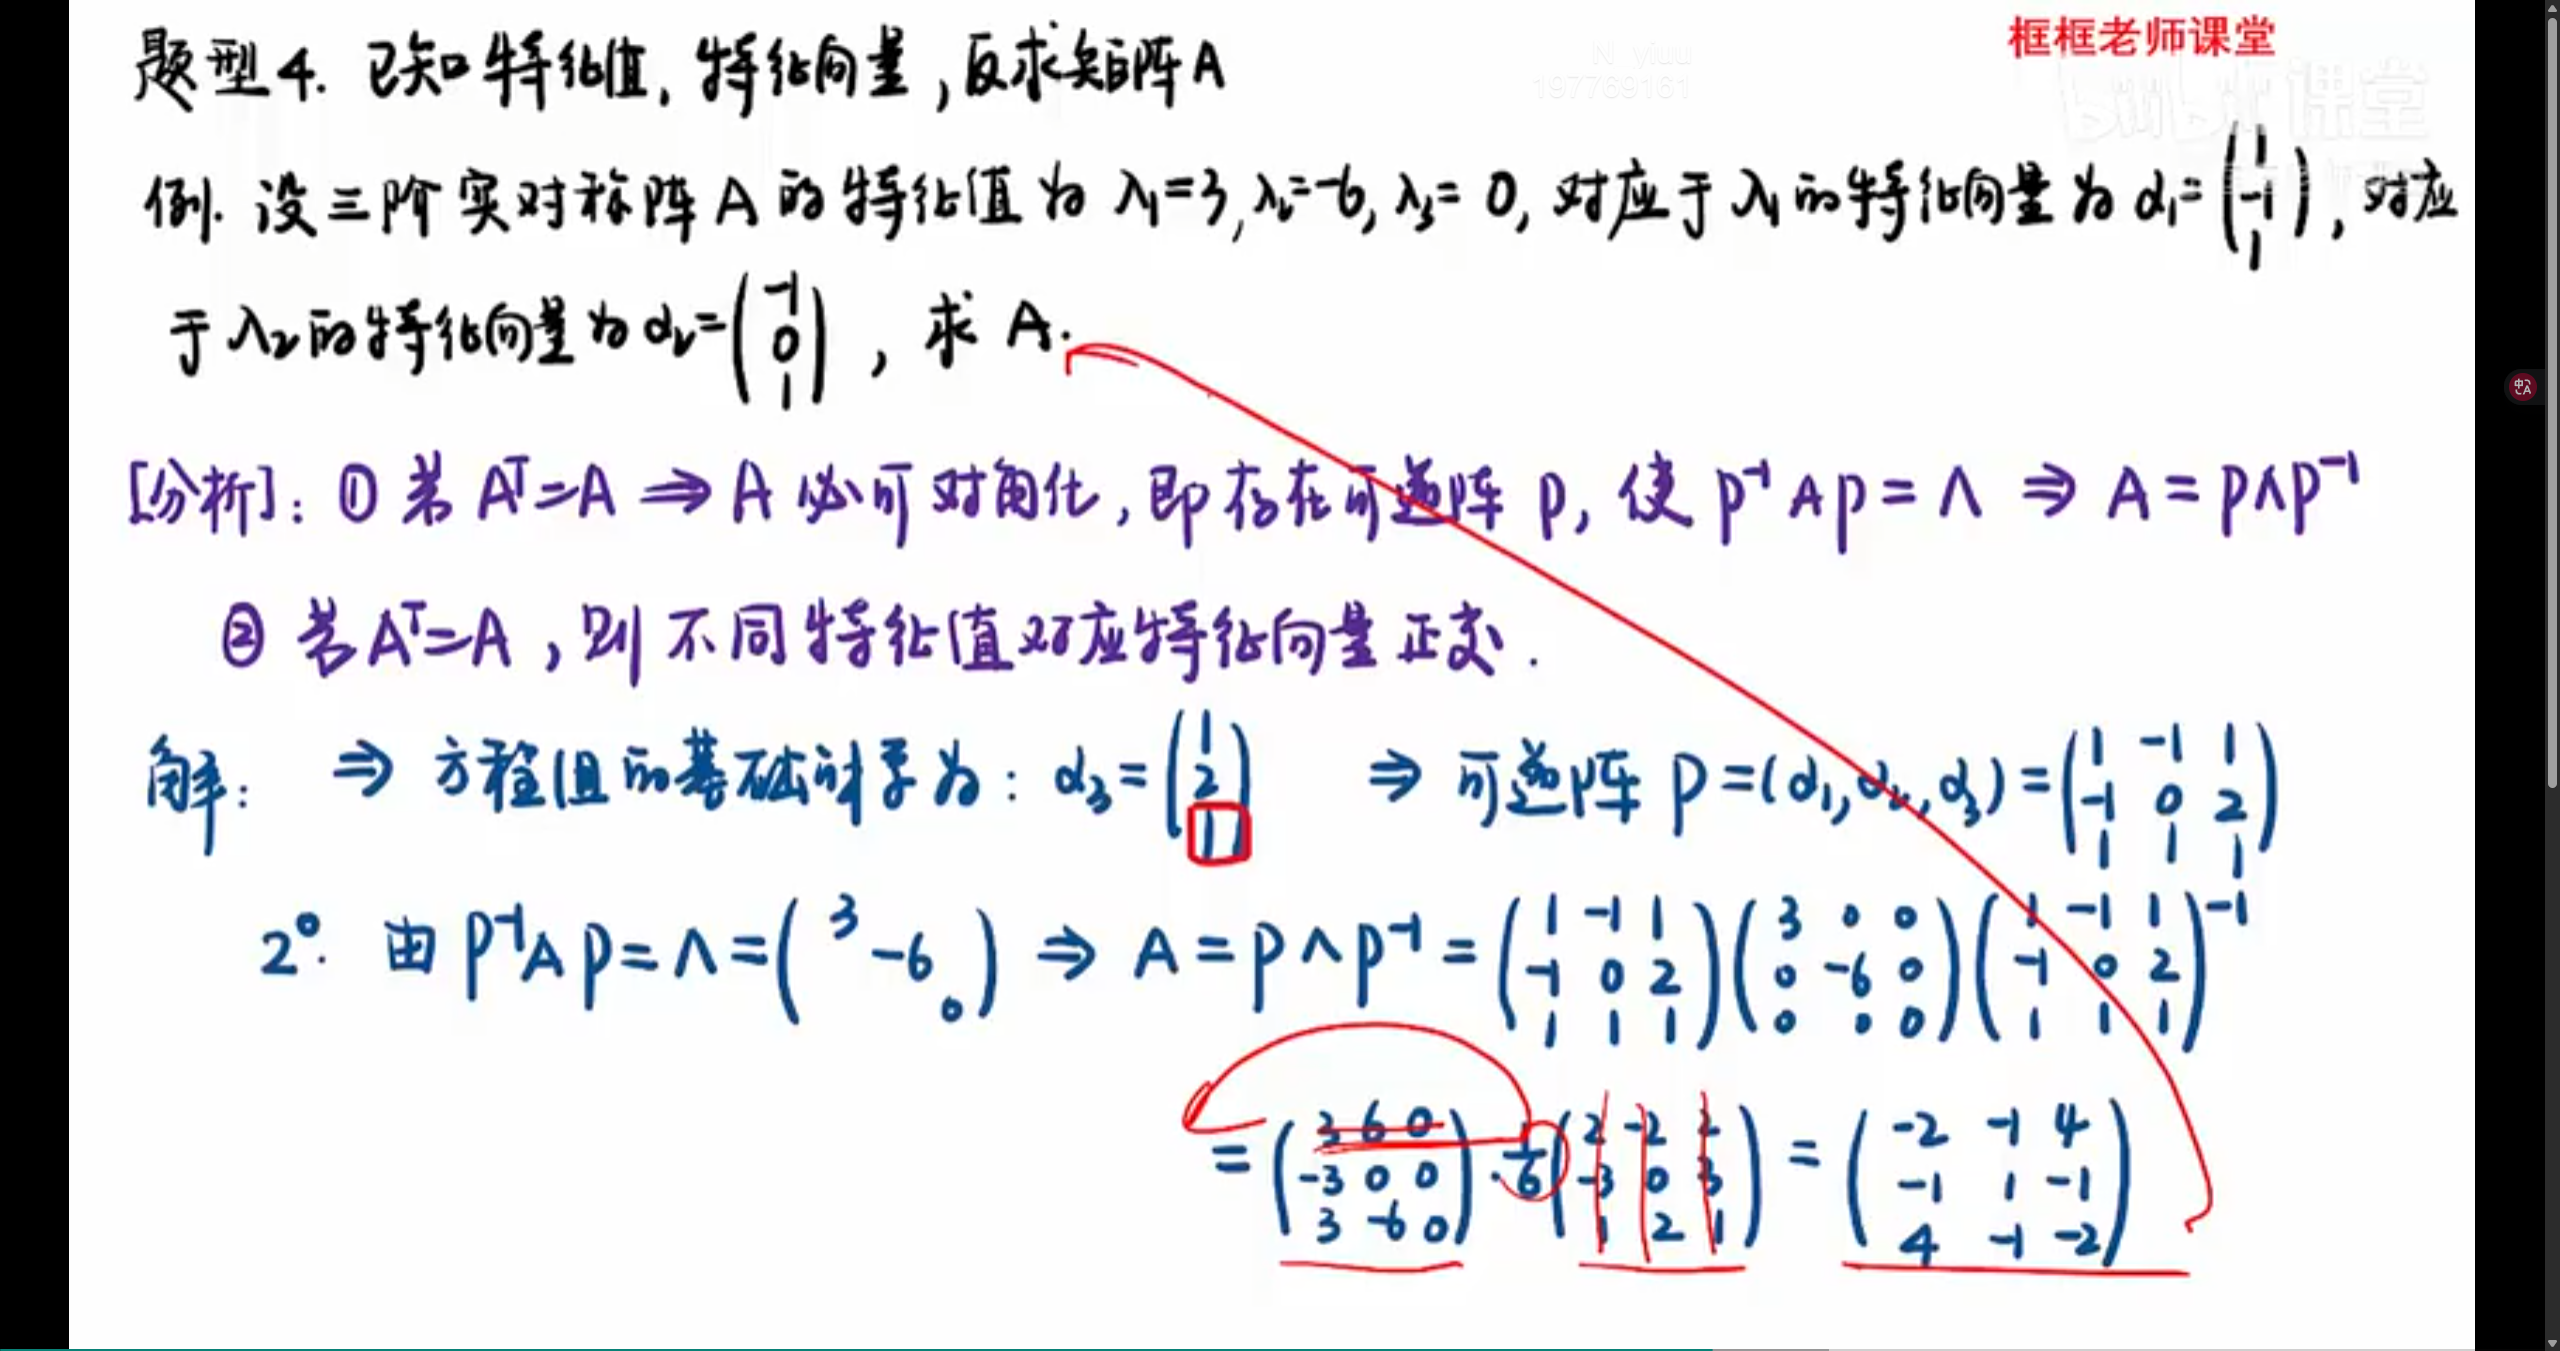 框框老师课堂
题型4. 已知特征值, 特征向量, 反求矩阵A
N yiuu
197769161
bilibili 课堂
例. 设三阶实对称阵 A 的特征值为 λ₁=3, λ₂=-6, λ₃=0, 对应于 λ₁ 的特征向量为 α₁=(1 -1 1), 对应
于 λ₂ 的特征向量为 α₂=(-1 0 1), 求 A.
[分析]: ① 若 Aᵀ=A ⇒ A 必可对角化, 即存在可逆阵 P, 使 P⁻¹AP=Λ ⇒ A=PΛP⁻¹
② 若 Aᵀ=A, 则不同特征值对应特征向量正交.
解: ⇒ 方程组的基础解系为: α₃=(1 2 1) ⇒ 可逆阵 P=(α₁,α₂,α₃)=(1 -1 1; -1 0 2; 1 1 1)
2°. 由 P⁻¹AP=Λ=(3 -6 0) ⇒ A=PΛP⁻¹=(1 -1 1; -1 0 2; 1 1 1)(3 0 0; 0 -6 0; 0 0 0)(1 -1 1; -1 0 2; 1 1 1)⁻¹
=(3 6 0; -3 0 0; 3 -6 0)·1/6(2 -2 2; -3 0 3; 1 2 1)=(-2 -1 4; -1 1 -1; 4 -1 -2)